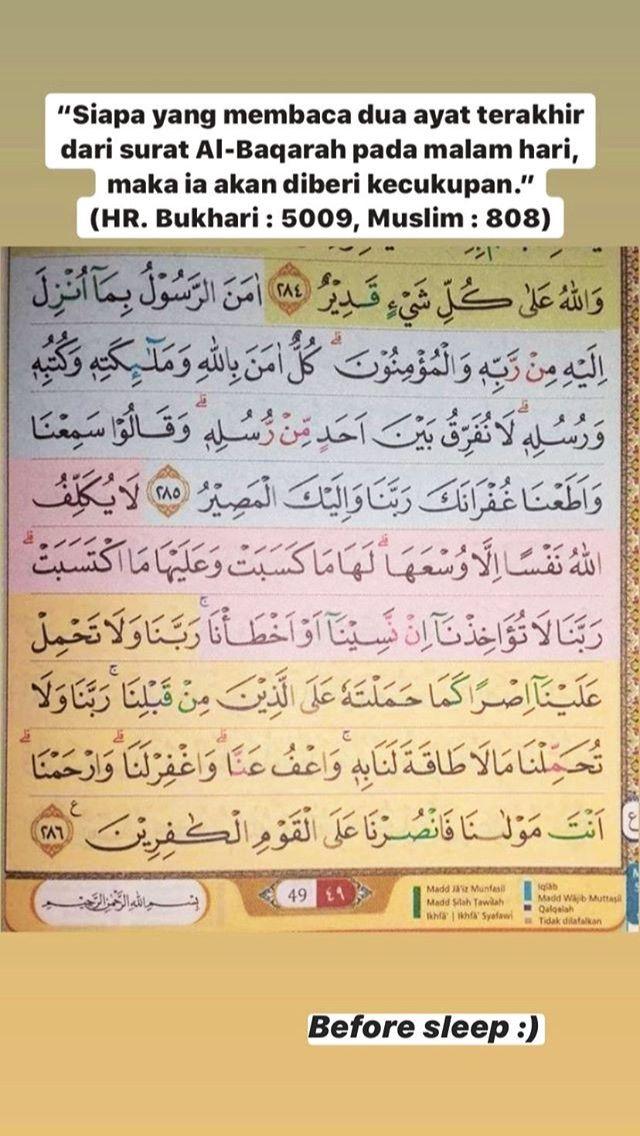 “Siapa yang membaca dua ayat terakhir
dari surat Al-Baqarah pada malam hari,
maka ia akan diberi kecukupan.”
(HR. Bukhari : 5009, Muslim : 808)
وَاللّٰهُ عَلٰى كُلِّ شَيْءٍ قَدِيْرٌ ٢٨٤ اٰمَنَ الرَّسُوْلُ بِمَآ اُنْزِلَ
اِلَيْهِ مِنْ رَّبِّهٖ وَالْمُؤْمِنُوْنَۗ كُلٌّ اٰمَنَ بِاللّٰهِ وَمَلٰۤىِٕكَتِهٖ وَكُتُبِهٖ
وَرُسُلِهٖۗ لَا نُفَرِّقُ بَيْنَ اَحَدٍ مِّنْ رُّسُلِهٖۗ وَقَالُوْا سَمِعْنَا
وَاَطَعْنَا غُفْرَانَكَ رَبَّنَا وَاِلَيْكَ الْمَصِيْرُ ٢٨٥ لَا يُكَلِّفُ
اللّٰهُ نَفْسًا اِلَّا وُسْعَهَاۗ لَهَا مَا كَسَبَتْ وَعَلَيْهَا مَا اكْتَسَبَتْۗ
رَبَّنَا لَا تُؤَاخِذْنَآ اِنْ نَّسِيْنَآ اَوْ اَخْطَأْنَاۚ رَبَّنَا وَلَا تَحْمِلْ
عَلَيْنَآ اِصْرًا كَمَا حَمَلْتَهٗ عَلَى الَّذِيْنَ مِنْ قَبْلِنَاۚ رَبَّنَا وَلَا
تُحَمِّلْنَا مَا لَا طَاقَةَ لَنَا بِهٖۚ وَاعْفُ عَنَّاۗ وَاغْفِرْ لَنَاۗ وَارْحَمْنَاۗ
اَنْتَ مَوْلٰىنَا فَانْصُرْنَا عَلَى الْقَوْمِ الْكٰفِرِيْنَ ࣖ ٢٨٦
ع
بِسْمِ اللّٰهِ الرَّحْمٰنِ الرَّحِيْمِ
49 ٤٩
Madd Jā'iz Munfaṣil
Madd Ṣilah Ṭawīlah
Ikhfā' | Ikhfā' Syafawī
Iqlāb
Madd Wājib Muttaṣil
Qalqalah
Tidak dilafalkan
Before sleep :)